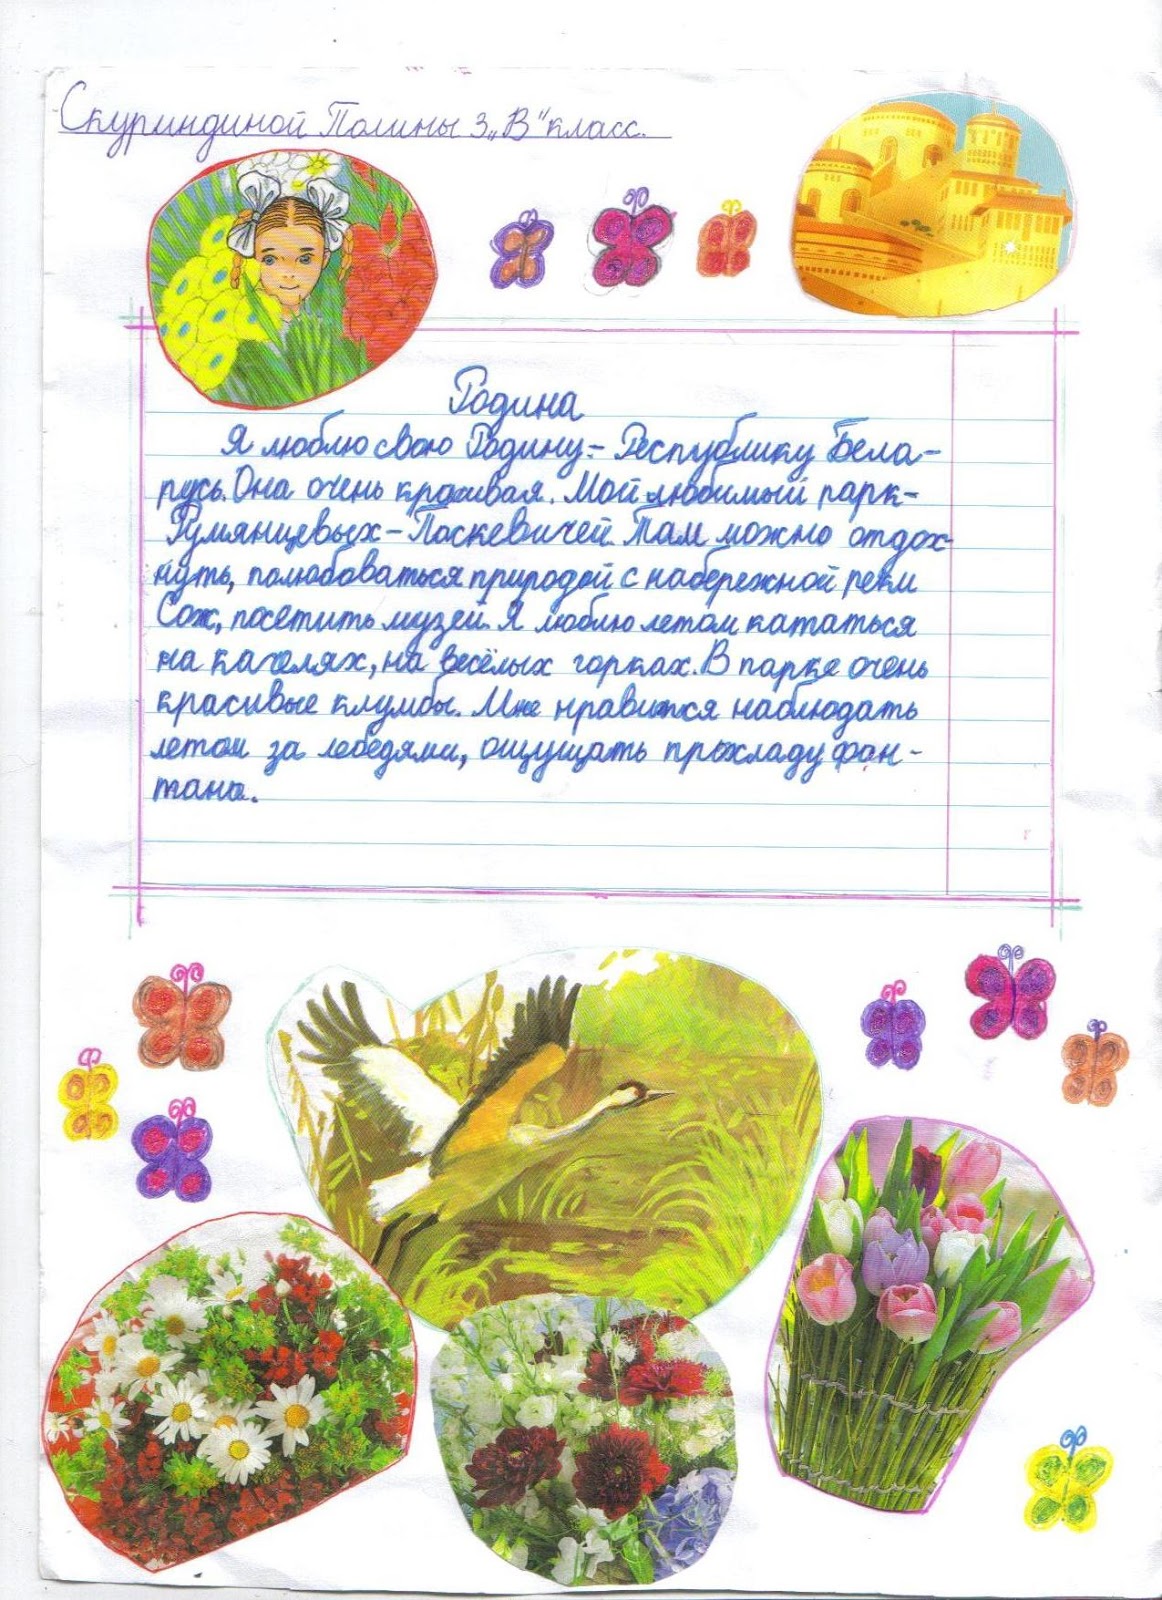 Скуриндиной Полины 3 „В" класс.
Родина
Я люблю свою Родину - Республику Бела-
русь. Она очень красивая. Мой любимый парк-
Румянцевых - Паскевичей. Там можно отдох-
нуть, полюбоваться природой с набережной реки
Сож, посетить музей. Я люблю летом кататься
на качелях, на весёлых горках. В парке очень
красивые клумбы. Мне нравится наблюдать
летом за лебедями, ощущать прохладу фон-
тана.